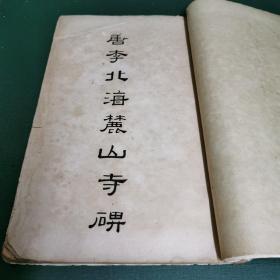 唐李北海麓山寺碑